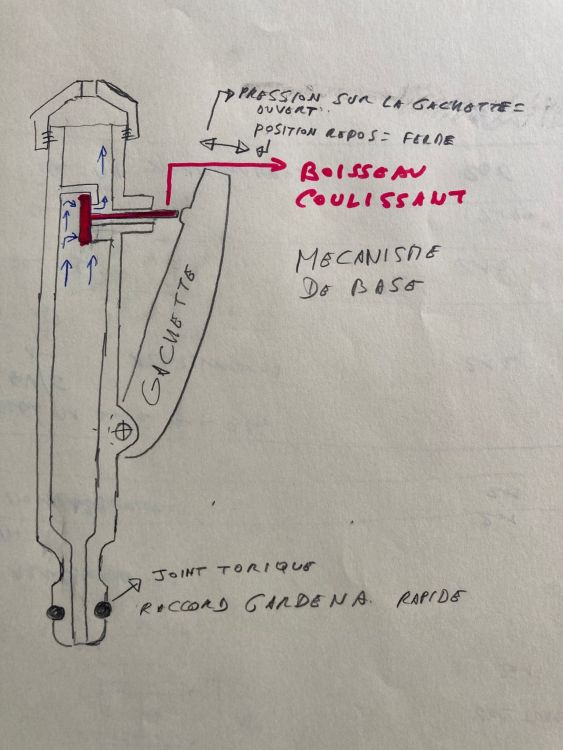 PRESSION SUR LA GACHETTE =
OUVERT.
POSITION REPOS = FERME
BOISSEAU
COULISSANT
MECANISME
DE BASE
GACHETTE
JOINT TORIQUE
RACCORD GARDENA. RAPIDE